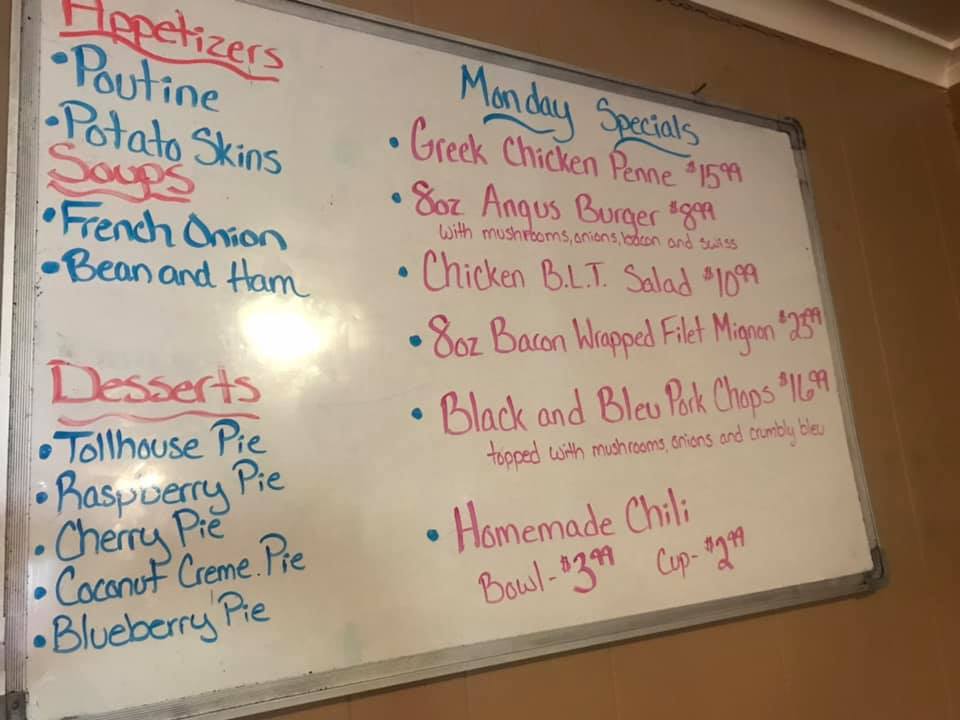 Appetizers
•Poutine
•Potato Skins
Soups
•French Onion
•Bean and Ham
Desserts
•Tollhouse Pie
•Raspberry Pie
•Cherry Pie
•Coconut Creme Pie
•Blueberry Pie
Monday Specials
•Greek Chicken Penne $15.99
•8oz Angus Burger $8.99
with mushrooms, onions, bacon and swiss
•Chicken B.L.T. Salad $10.99
•8oz Bacon Wrapped Filet Mignon $23.99
•Black and Bleu Pork Chops $16.99
topped with mushrooms, onions and crumbly bleu
•Homemade Chili
Bowl-$3.99 Cup-$2.99